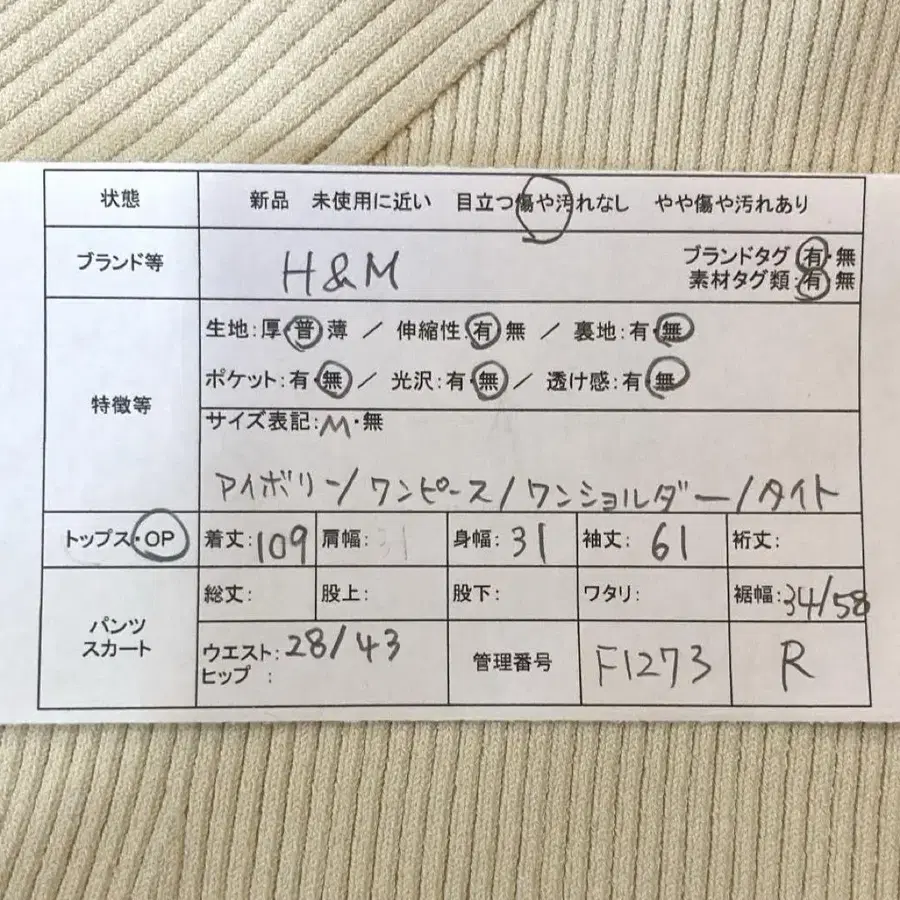 状態 新品 未使用に近い 目立つ傷や汚れなし やや傷や汚れあり
ブランド等 H&M ブランドタグ 有・無
素材タグ類:有 無
特徴等 生地:厚・普 薄 / 伸縮性:有 無 / 裏地:有・無
ポケット:有・無 / 光沢:有・無 / 透け感:有・無
サイズ表記:M・無
アイボリー/ワンピース/ワンショルダー/タイト
トップス・OP 着丈:109 肩幅:31 身幅:31 袖丈:61 裄丈:
パンツ
スカート
総丈: 股上: 股下: ワタリ: 裾幅:34/58
ウエスト:28/43
ヒップ :
管理番号 F1273 R